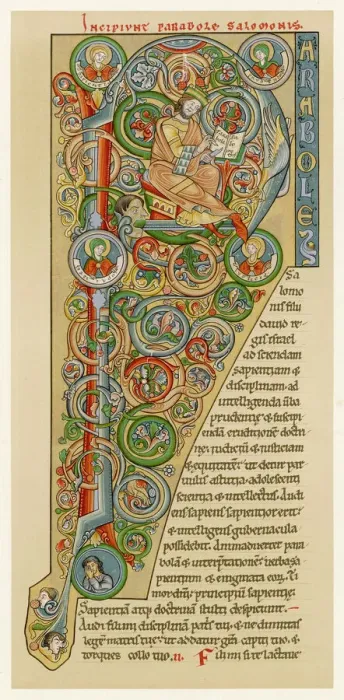 Incipiunt parabole salomonis.
P
ARABOLES
SAL
Sa
lomo
nis filii
dauid re-
gis israel
ad sciendam
sapientiam &
disciplinam. ad
intelligenda uba
prudentię & suscipi-
endā eruditionē doctri-
nę. iusticiā & iudiciū
& equitatē: ut detur par
uulis astutia. adolescenti
scientia & intellectus. Audi
ens sapiens sapientior erit:
& intelligens gubernacula
possidebit. Animaduertet para
bolā & interptationē. uerba sa-
pientium & enigmata eoꝝ. Ti
mor dn̄i principiū sapientię.
Sapientiā atq; doctrinā stulti despiciunt.
Audi fili mi disciplinā patris tui. & ne dimittas
legē matris tuę: ut addatur gr̄a capiti tuo. &
torques collo tuo. ii. Fili mi si te lactaue